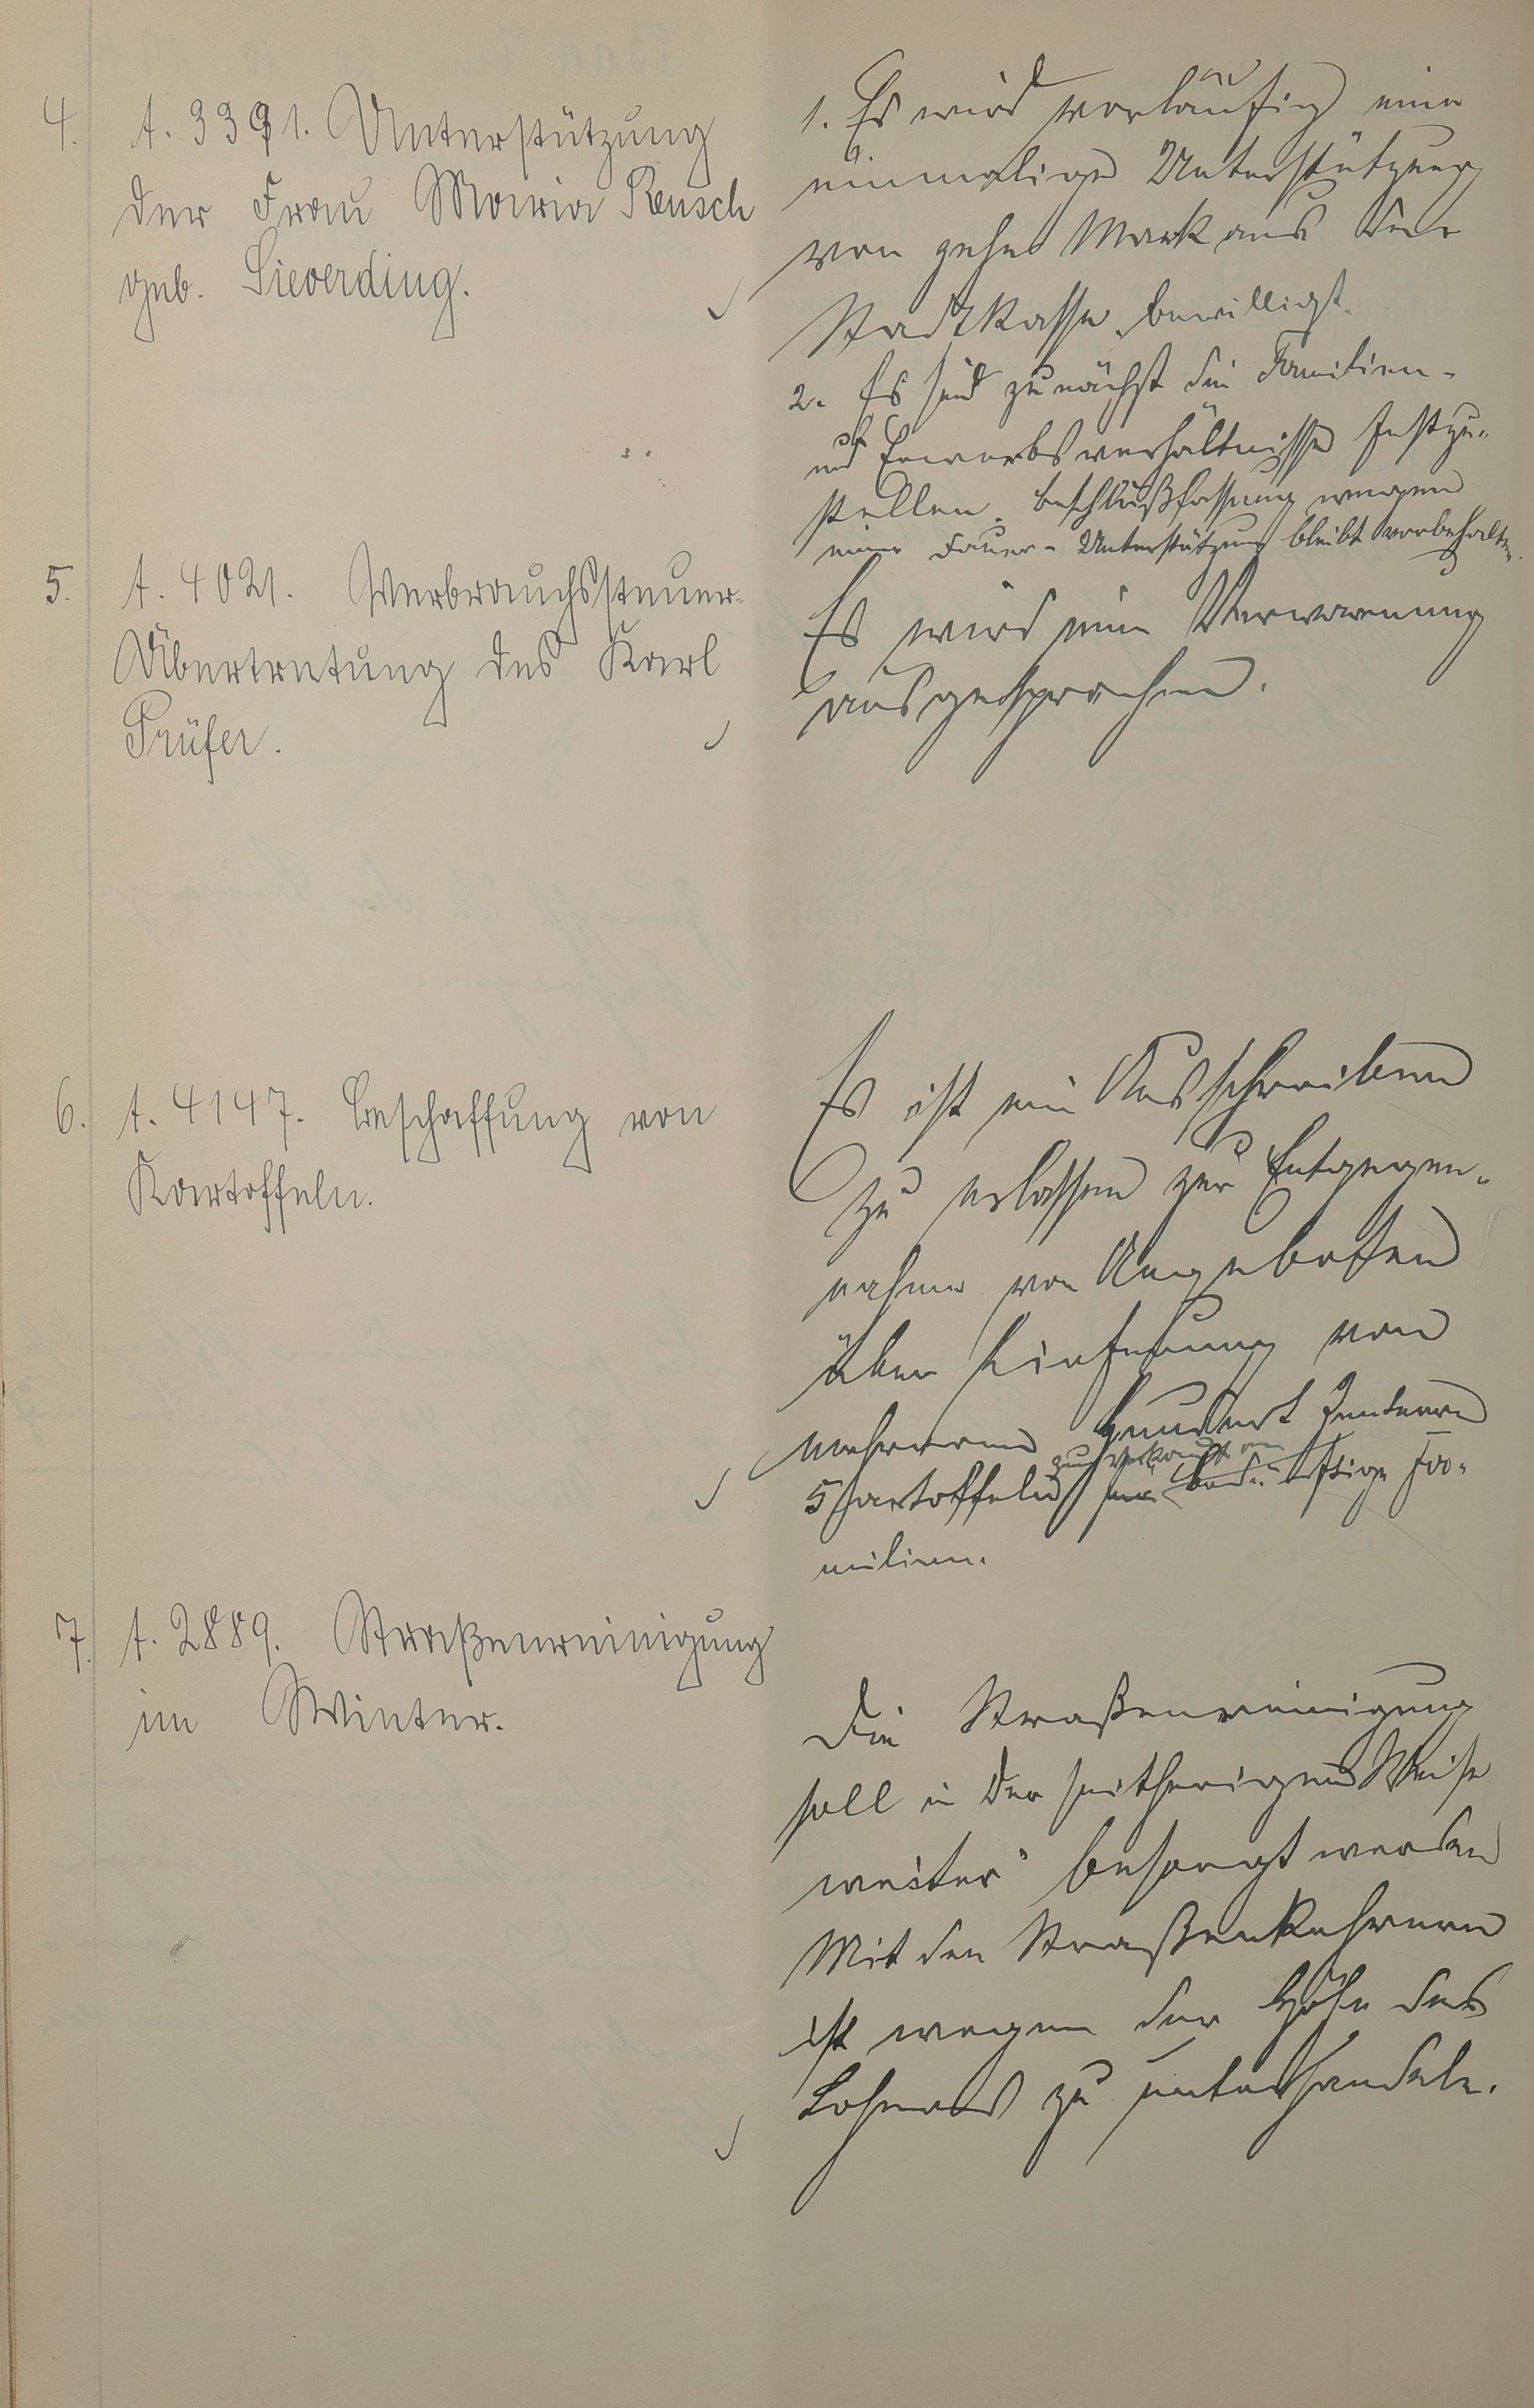 4. A. 3391. Unterstützung
der Frau Maria Reusch
geb. Sieverding.
1. Es wird vorläufig eine
einmalige Unterstützung
von zehn Mark aus der
Stadtkasse bewilligt.
2. Es sind zunächst die Familien-
und Erwerbsverhältnisse festzu-
stellen. Beschlußfassung wegen
einer Dauer-Unterstützung bleibt vorbehalten.
5. A. 4021. Verbrauchssteuer-
Übertretung des Karl
Prüfer.
Es wird eine Verwarnung
ausgesprochen.
6. A. 4147. Beschaffung von
Kartoffeln.
Es ist ein Ausschreiben
zu erlassen zur Entgegen-
nahme von Angeboten
über Lieferung von
mehreren hundert Zentnern
zum Verkauf an
Kartoffeln für bedürftige Fa-
milien.
7. A. 2889. Straßenreinigung
im Winter.
Die Straßenreinigung
soll in der seitherigen Weise
weiter besorgt werden
Mit den Straßenkehrern
ist wegen der Höhe des
Lohnes zu unterhandeln.